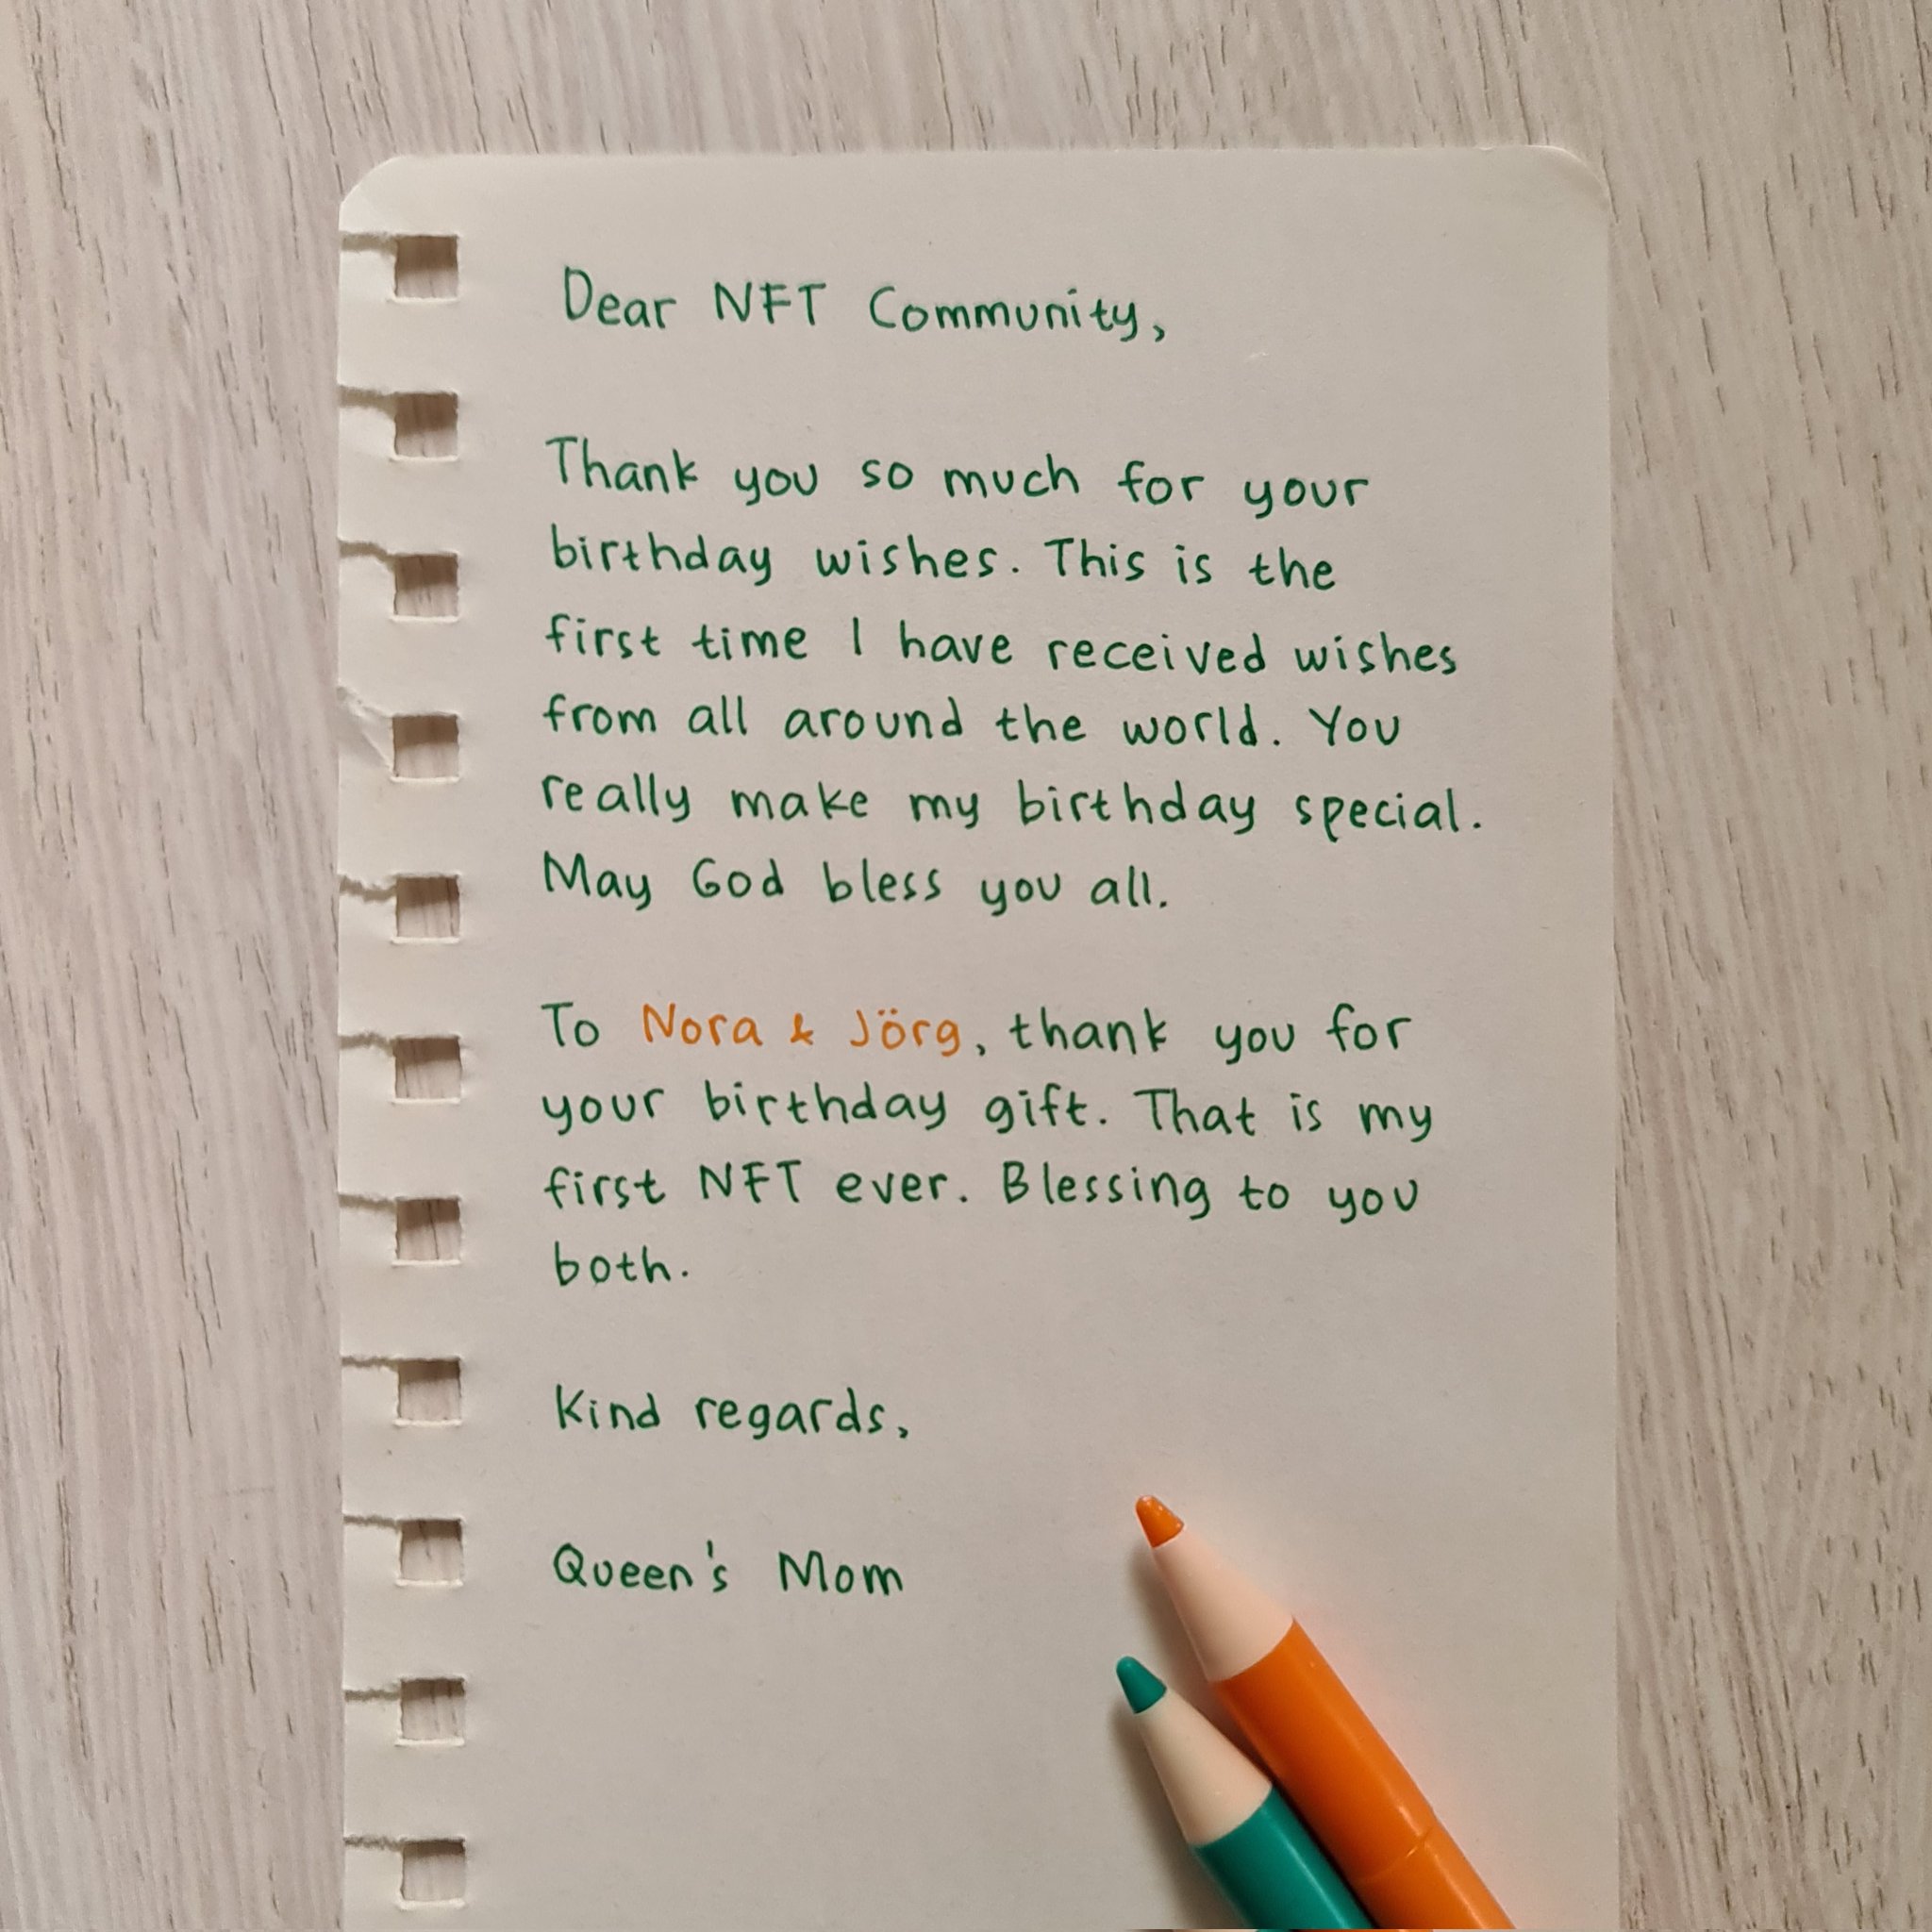 Dear NFT Community,
Thank you so much for your
birthday wishes. This is the
first time I have received wishes
from all around the world. You
really make my birthday special.
May God bless you all.
To Nora & Jörg, thank you for
your birthday gift. That is my
first NFT ever. Blessing to you
both.
Kind regards,
Queen's Mom